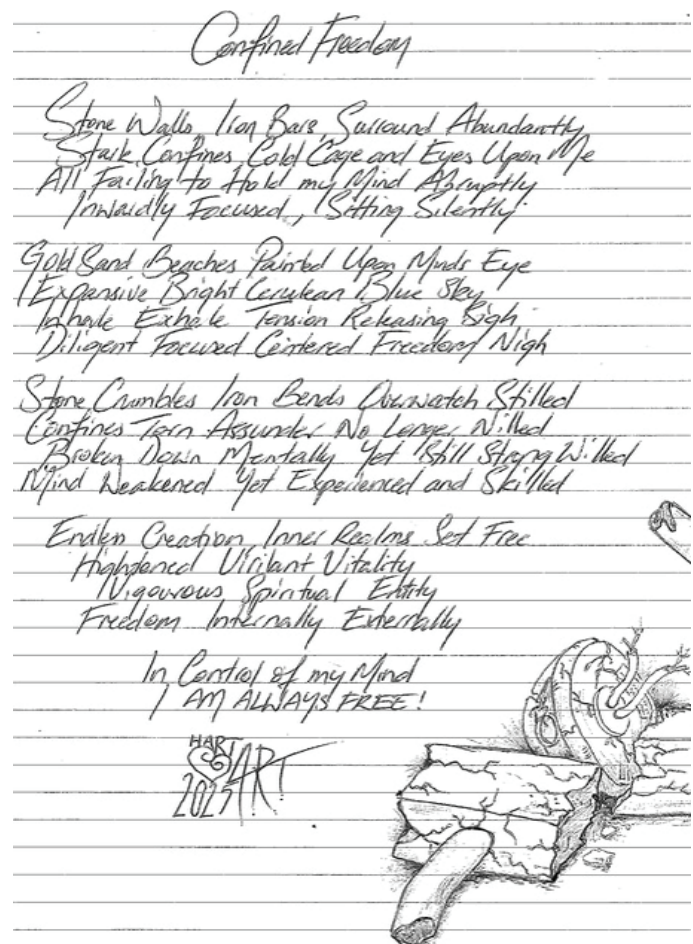 Confined Freedom
Stone Walls, Iron Bars, Surround Abundantly
Stark Confines, Cold Cage and Eyes Upon Me
All Failing to Hold my Mind Abruptly
Inwardly Focused, Sitting Silently
Gold Sand Beaches Painted Upon Minds Eye
Expansive Bright Cerulean Blue Sky
Inhale Exhale Tension Releasing Sigh
Diligent Focused Ceintered Freedom Nigh
Stone Crumbles Iron Bends Overwatch Stilled
Confines Torn Assunder No Longer Nilled
Broken Down Mentally Yet Still Strong Willed
Mind Weakened Yet Experienced and Skilled
Endless Creation, Inner Realms Set Free
Hightened Virilant Vitality
Vigourous Spiritual Entity
Freedom Internally Externally
In Control of my Mind
I AM ALWAYS FREE!
HART
ART
2025